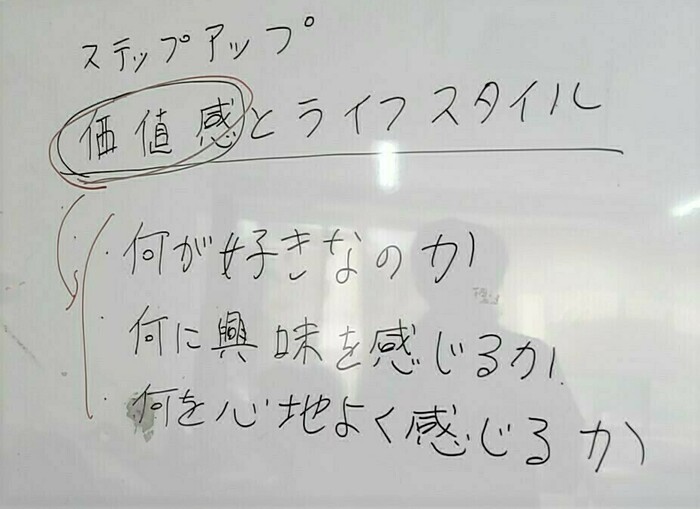 ステップアップ
価値感とライフスタイル
何が好きなのか
何に興味を感じるか
何を心地よく感じるか